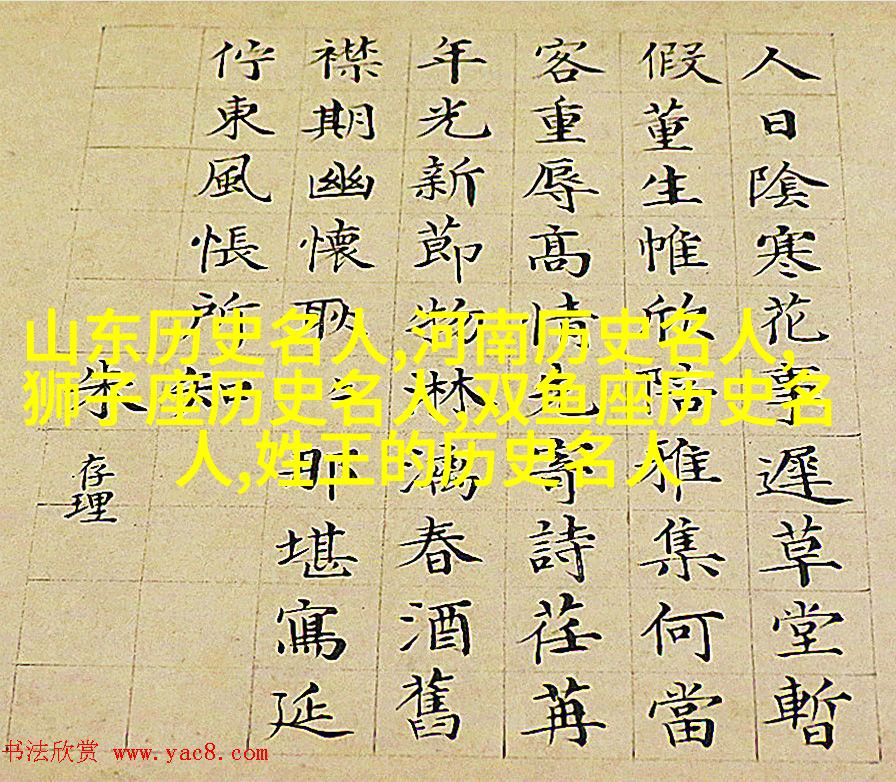 人日陰寒花事遲草堂暫
假董生帷欣陪雅集何當
客重辱高情先寄詩荏苒
年光新節物淋漓春酒舊
襟期幽懷耿〻那堪寫延
佇東風悵所知
朱存理
山东历史名人,河南历史名人,
狮子座历史名人,双鱼座历史名
人,姓王的历史名人
书法欣赏 www.yac8.com